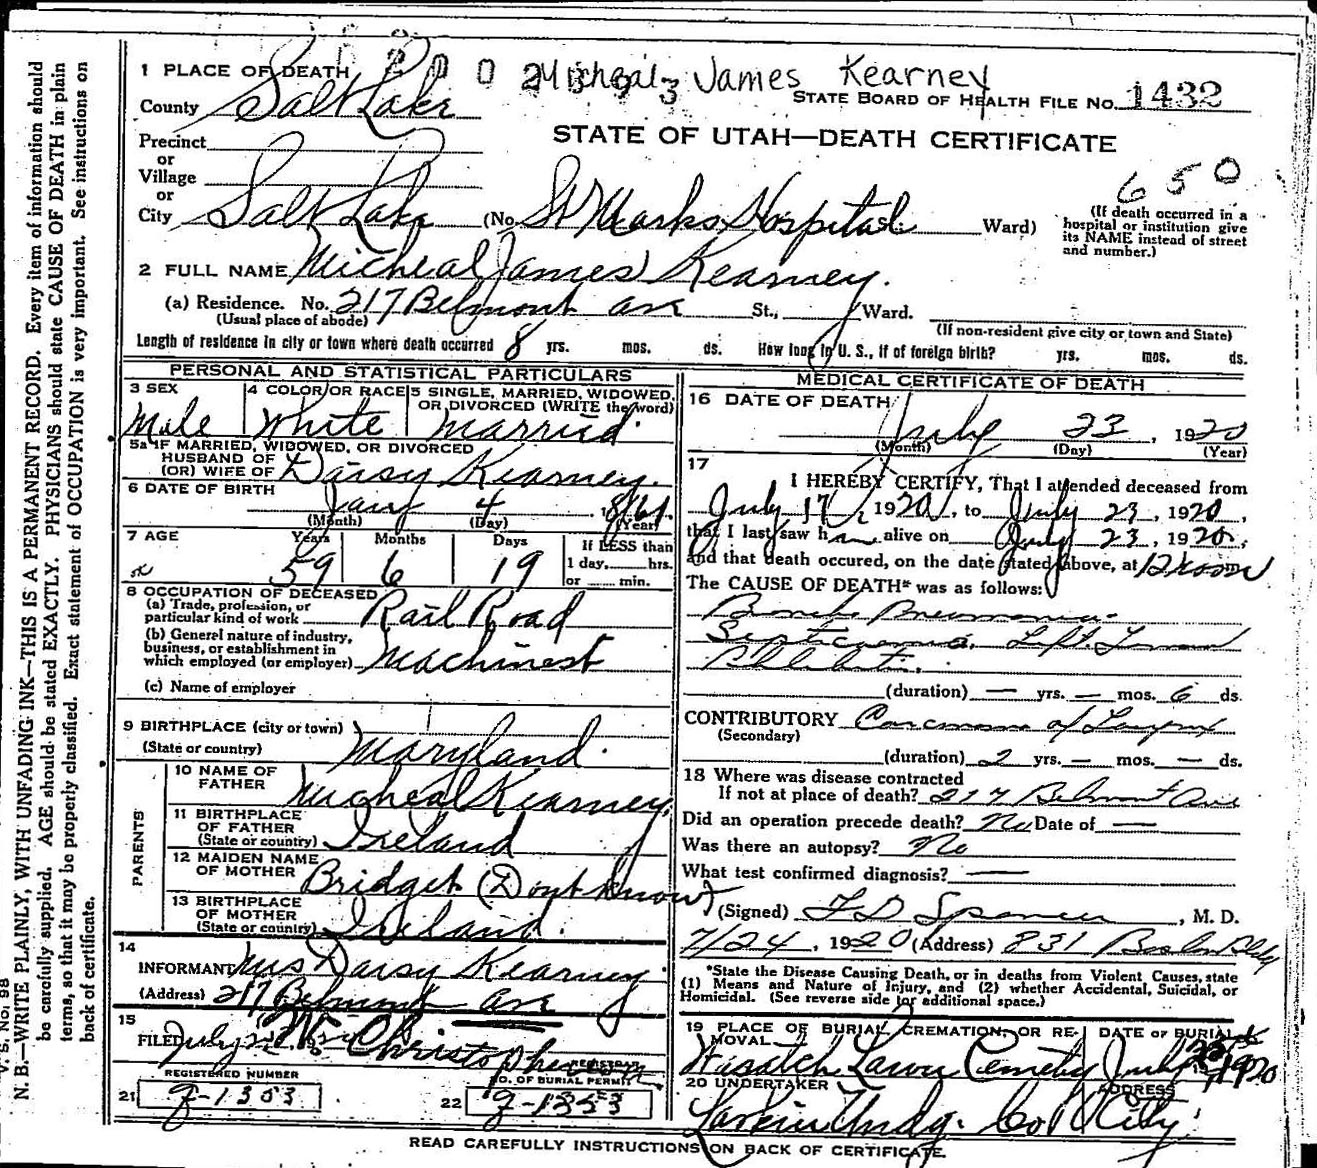 Micheal James Kearney
1 PLACE OF DEATH
County Salt Lake
STATE BOARD OF HEALTH FILE NO. 1432
STATE OF UTAH—DEATH CERTIFICATE
Precinct
or
Village
or
City Salt Lake (No. St Marks Hospital Ward)
650
(If death occurred in a hospital or institution give its NAME instead of street and number.)
2 FULL NAME Micheal James Kearney.
(a) Residence. No. 217 Belmont ave St., Ward.
(Usual place of abode)
(If non-resident give city or town and State)
Length of residence in city or town where death occurred 8 yrs. mos. ds. How long in U. S., if of foreign birth? yrs. mos. ds.
PERSONAL AND STATISTICAL PARTICULARS
3 SEX Male
4 COLOR OR RACE White
5 SINGLE, MARRIED, WIDOWED, OR DIVORCED (WRITE the word) Married.
5a IF MARRIED, WIDOWED, OR DIVORCED
HUSBAND OF
(OR) WIFE OF Daisy Kearney.
6 DATE OF BIRTH
Jany 4, 1861.
(Month) (Day) (Year)
7 AGE
Years Months Days
59 6 19
If LESS than
1 day, hrs.
or min.
8 OCCUPATION OF DECEASED
(a) Trade, profession, or
particular kind of work Rail Road
(b) General nature of industry,
business, or establishment in
which employed (or employer) Machinest
(c) Name of employer
9 BIRTHPLACE (city or town)
(State or country) Maryland.
PARENTS
10 NAME OF
FATHER Micheal Kearney.
11 BIRTHPLACE
OF FATHER
(State or country) Ireland
12 MAIDEN NAME
OF MOTHER Bridget (Dont know)
13 BIRTHPLACE
OF MOTHER
(State or country) Ireland.
14
INFORMANT Mrs Daisy Kearney.
(Address) 217 Belmont ave
15
FILED July
REGISTRAR
REGISTERED NUMBER
21 g-1353
NO. OF BURIAL PERMIT
22 g-1353
MEDICAL CERTIFICATE OF DEATH
16 DATE OF DEATH
July 23, 1920
(Month) (Day) (Year)
17
I HEREBY CERTIFY, That I attended deceased from
July 17, 1920, to July 23, 1920,
that I last saw him alive on July 23, 1920,
and that death occured, on the date stated above, at 12 noon
The CAUSE OF DEATH* was as follows:
Broncho Pneumonia
Septicemia. Left
(duration) — yrs. — mos. 6 ds.
CONTRIBUTORY Carcinoma of Larynx
(Secondary)
(duration) 2 yrs. — mos. — ds.
18 Where was disease contracted
If not at place of death? 217 Belmont Ave
Did an operation precede death? No Date of —
Was there an autopsy? No
What test confirmed diagnosis? —
(Signed) F D Spencer, M. D.
7/24, 1920 (Address) 831 Boston Bldg
*State the Disease Causing Death, or in deaths from Violent Causes, state
(1) Means and Nature of Injury, and (2) whether Accidental, Suicidal, or
Homicidal. (See reverse side for additional space.)
19 PLACE OF BURIAL, CREMATION, OR RE-
MOVAL
Wasatch Lawn Cemetey
DATE OF BURIAL
July 1920
20 UNDERTAKER
Larkin Undg. Co
ADDRESS
City
READ CAREFULLY INSTRUCTIONS ON BACK OF CERTIFICATE.
V. S. No. 98
N. B.—WRITE PLAINLY, WITH UNFADING INK—THIS IS A PERMANENT RECORD. Every item of information should
be carefully supplied. AGE should be stated EXACTLY. PHYSICIANS should state CAUSE OF DEATH in plain
terms, so that it may be properly classified. Exact statement of OCCUPATION is very important. See instructions on
back of certificate.